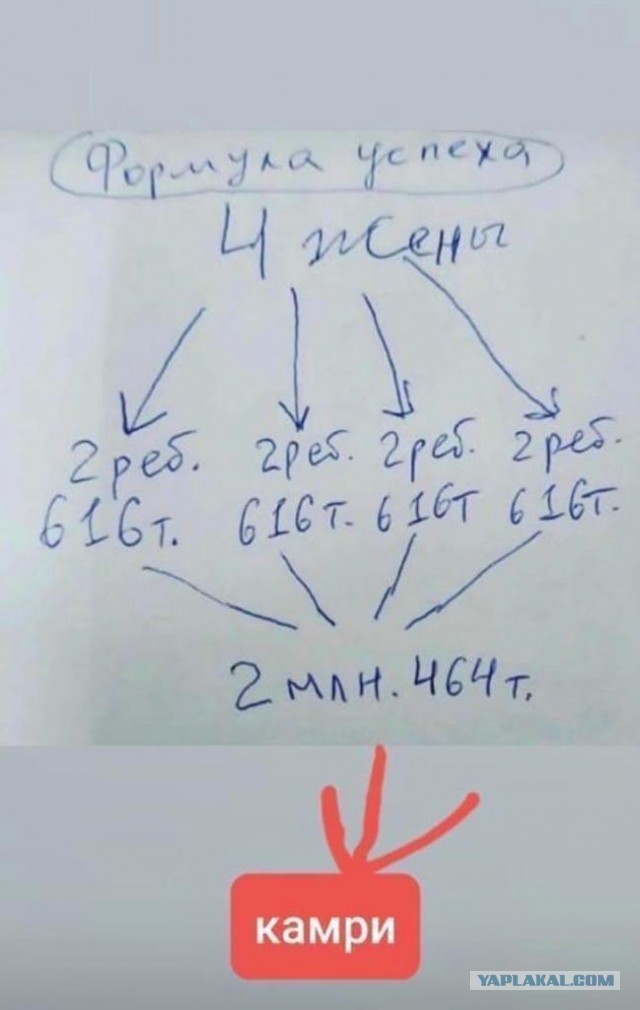 Формула успеха
4 жены
2 реб. 2 реб. 2 реб. 2 реб.
616т. 616т. 616т 616т.
2 млн. 464т.
камри
YAPLAKAL.COM